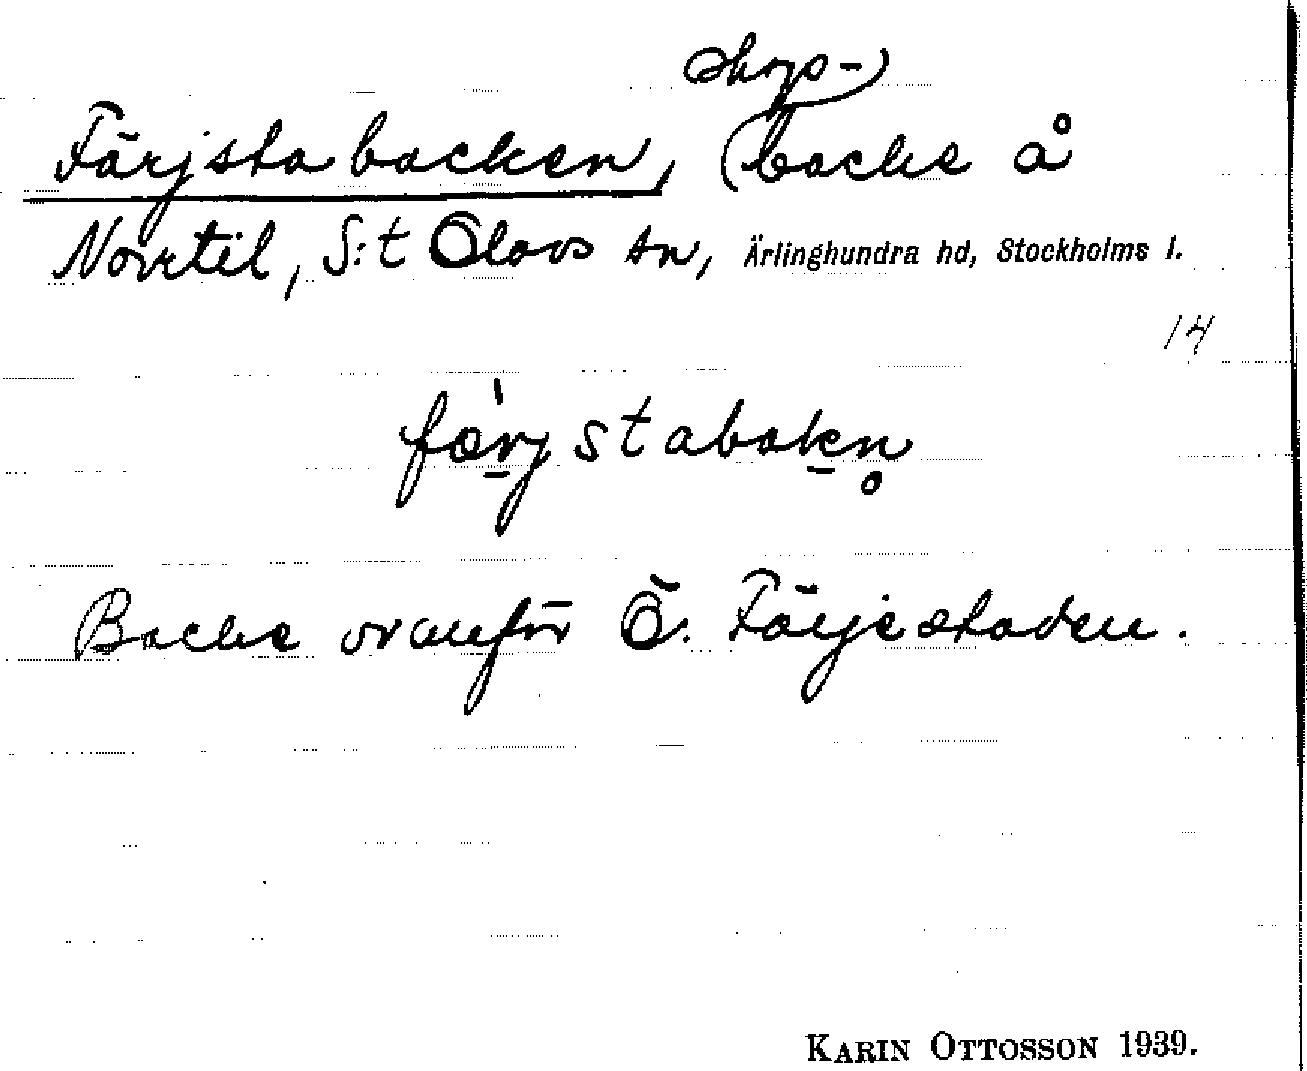 skogs-
Färjstabacken, backe å
Norrtil, S:t Olovs sn, Ärlinghundra hd, Stockholms l.
14
fæ̱rjstabaḵn̥
Backe ovanför Ö. Färjestaden.
KARIN OTTOSSON 1939.